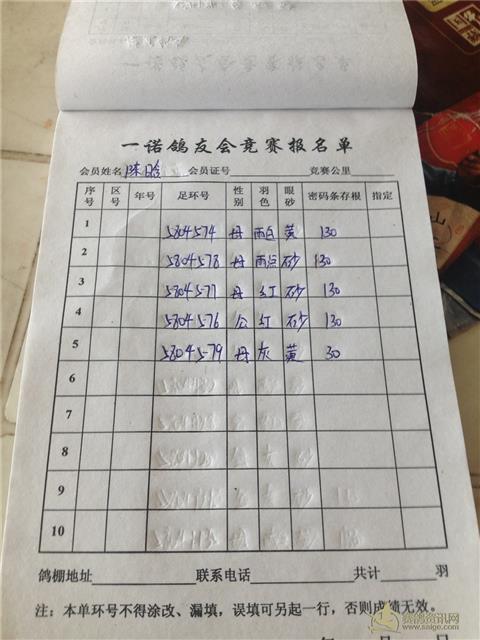 一诺鸽友会竞赛报名单
会员姓名 陈晗 会员证号 竞赛公里
序号 区号 年号 足环号 性别 羽色 眼砂 密码条存根 指定
1 5804574 雨白 黄 130
2 5804578 雨点 砂 130
3 5804577 红 砂 130
4 5804576 公 红 砂 130
5 5804579 灰 黄 30
6
7
8
9
10
鸽棚地址 联系电话 共计 羽
注：本单环号不得涂改、漏填，误填可另起一行，否则成绩无效。
年 月 日
赛鸽资讯网
www.saige.com